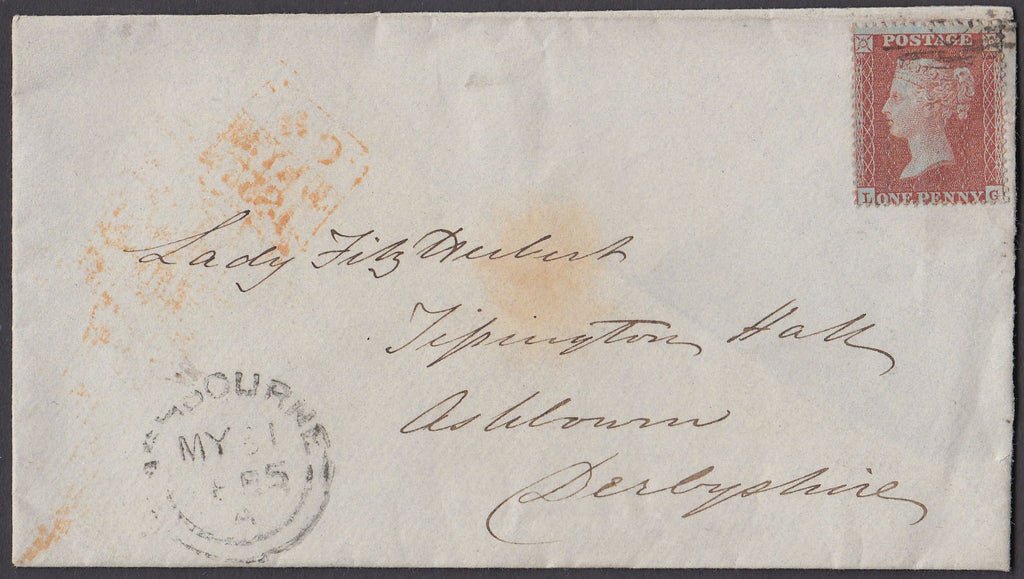 POSTAGE
L ONE PENNY G
Lady FitzHerbert
Tissington Hall
Ashbourn
Derbyshire
ASHBOURNE
MY 31
1855
A